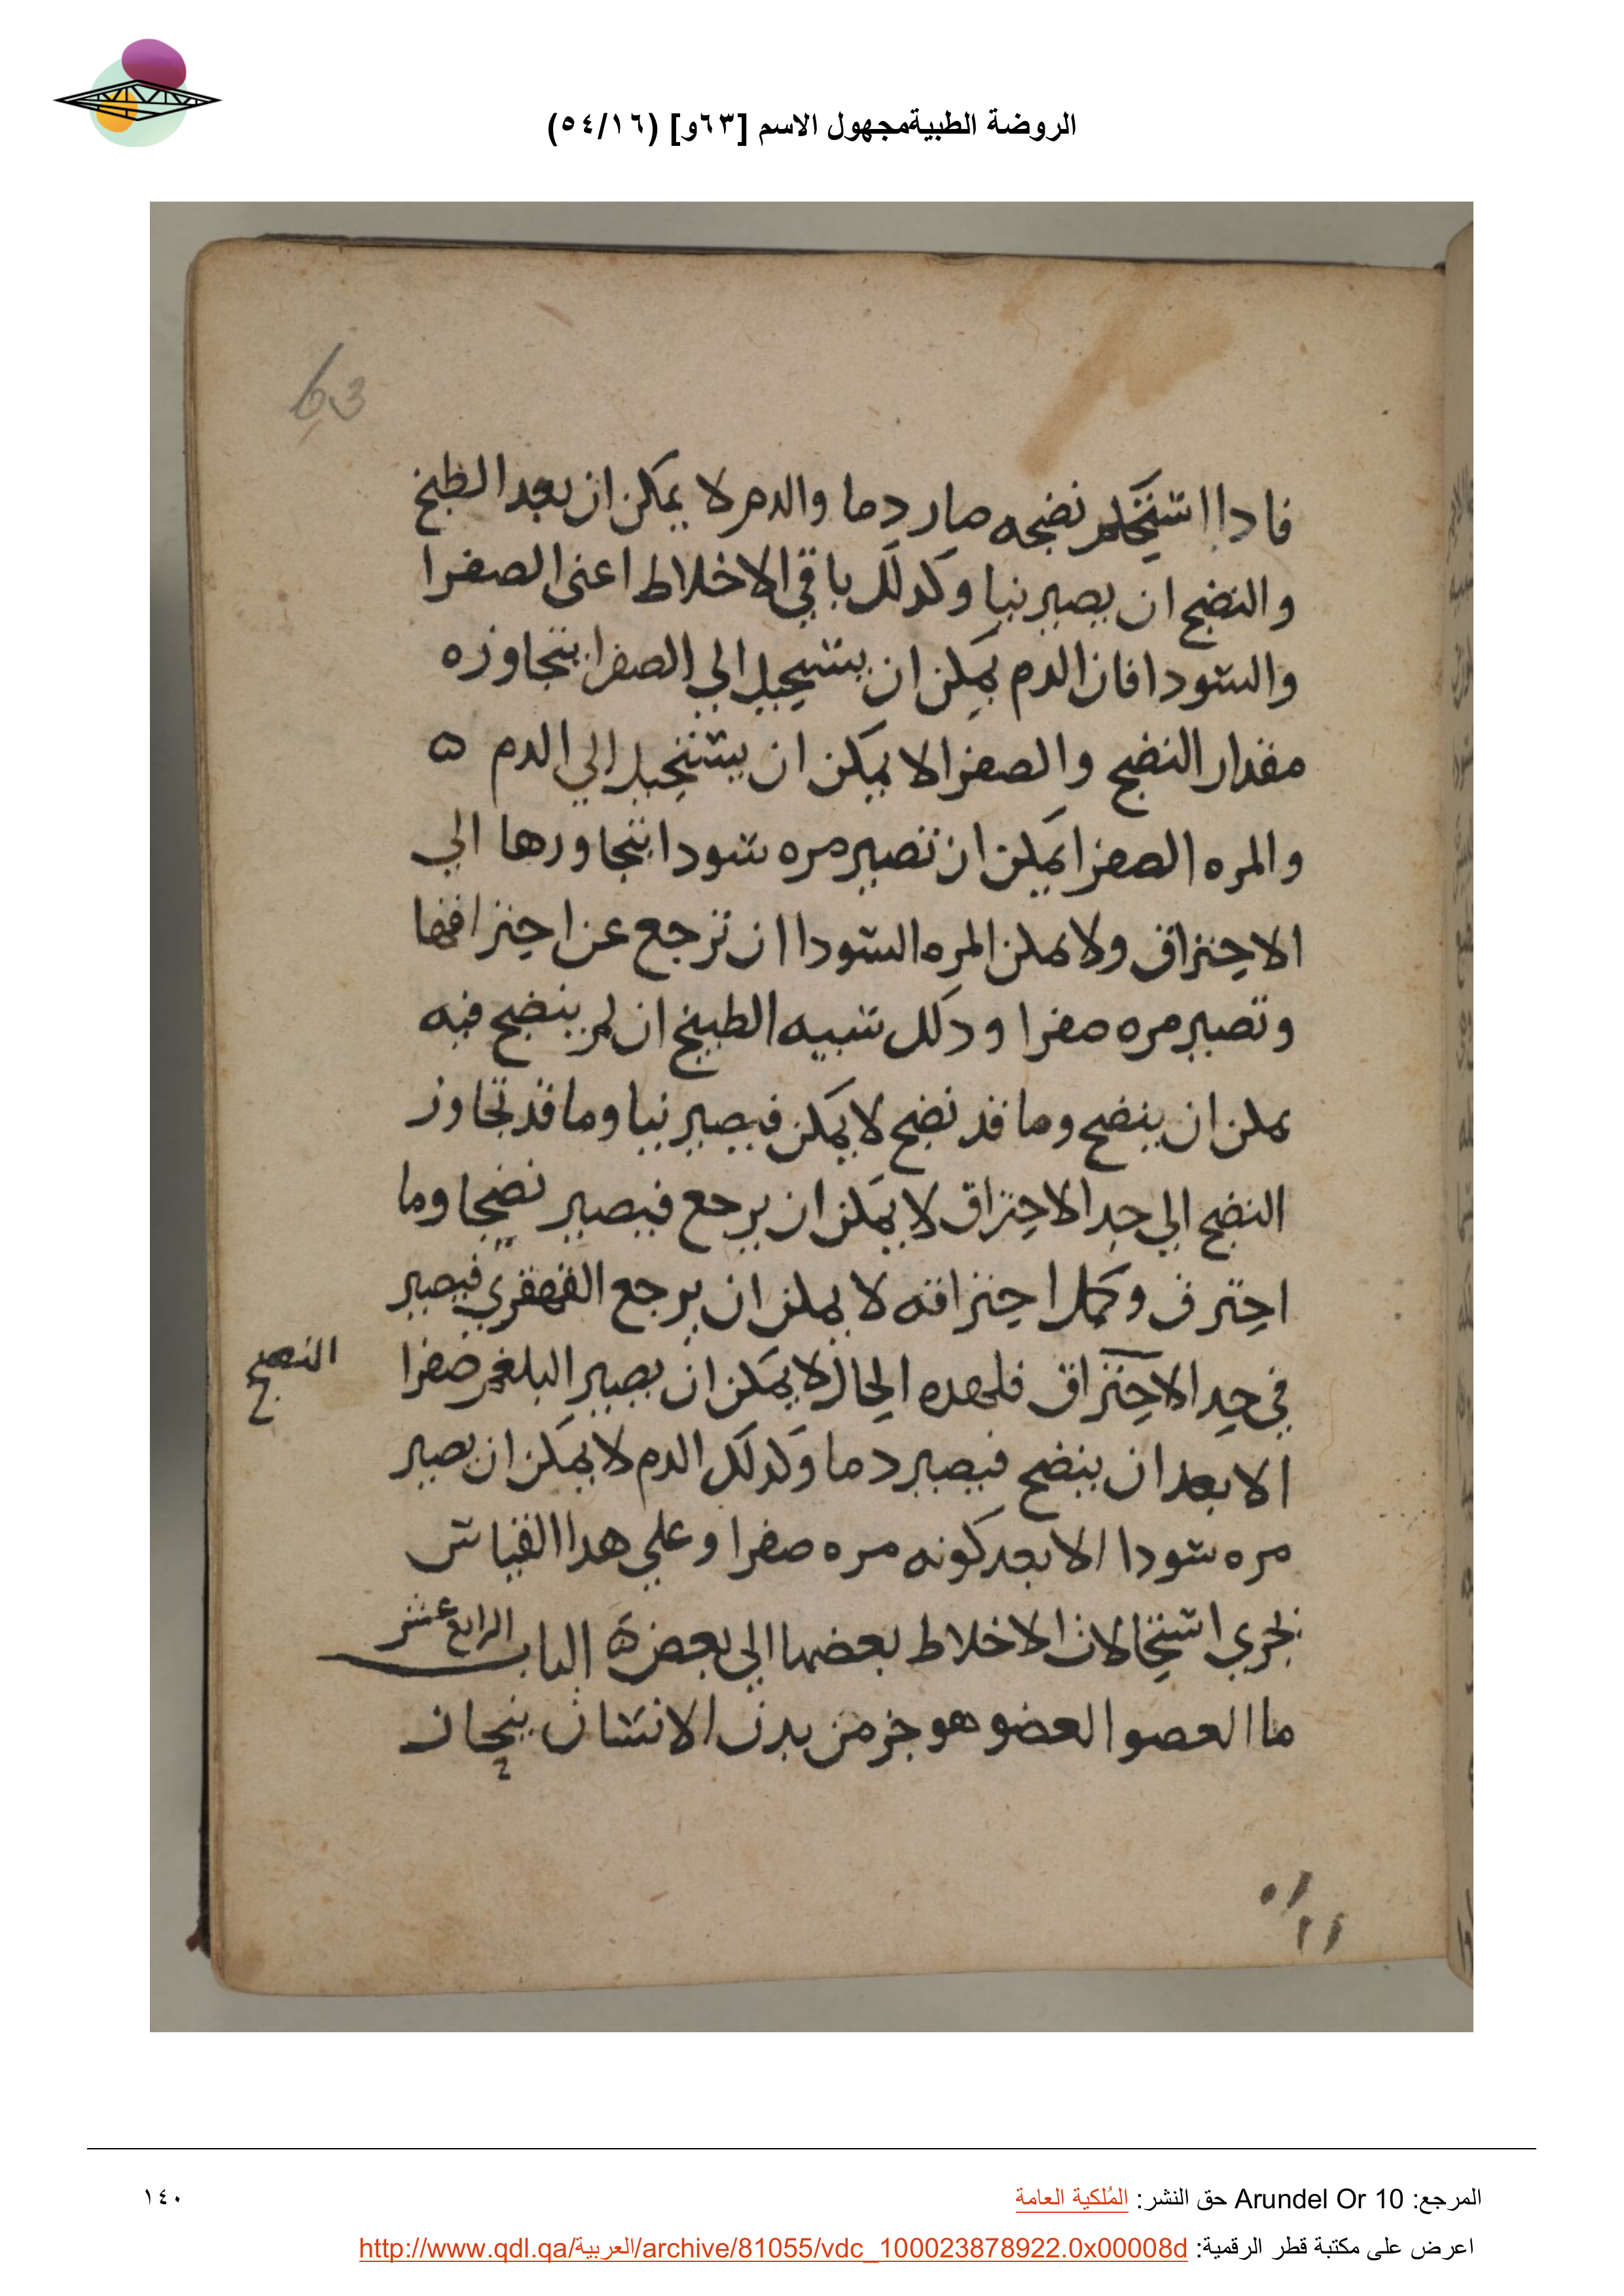 الروضة الطبيةمجهول الاسم [٦٣و] (٥٤/١٦)
63
فادا استحكم نضجه صار دما والدم لا يمكن ان بعد الطبخ
والنضج ان يصير نيا وكدلك باقي الاخلاط اعنى الصفرا
والسودا فان الدم يمكن ان يستحيل الي الصفرا بتجاوزه
مقدار النضج والصفرا لا يمكن ان يستحيل الي الدم ٥
والمره الصفرا يمكن ان تصير مره سودا بتجاورها الي
الاحتراق ولا يمكن المره السودا ان ترجع عن احتراقها
وتصير مره صفرا ودلك شبيه الطبيخ ان لم ينضج فيه
يمكن ان ينضج وما قد نضج لا يمكن فيصير نيا وما قد تجاوز
النضج الي حد الاحتراق لا يمكن ان يرجع فيصير نضجا وما
احترق وكمل احتراقه لا يمكن ان يرجع القهقري فيصير
في حد الاحتراق فلهده الحال لا يمكن ان يصير البلغم صفرا
النضج
الا بعد ان ينضج فيصير دما وكدلك الدم لا يمكن ان يصير
مره سودا الا بعد كونه مره صفرا وعلي هدا القياس
تجري استحالات الاخلاط بعضها الي بعض ٥ الباب الرابع عشر
ما العضو العضو هو جز من بدن الانسان
المرجع: Arundel Or 10 حق النشر: المُلكية العامة
١٤٠
اعرض على مكتبة قطر الرقمية: http://www.qdl.qa/العربية/archive/81055/vdc_100023878922.0x00008d